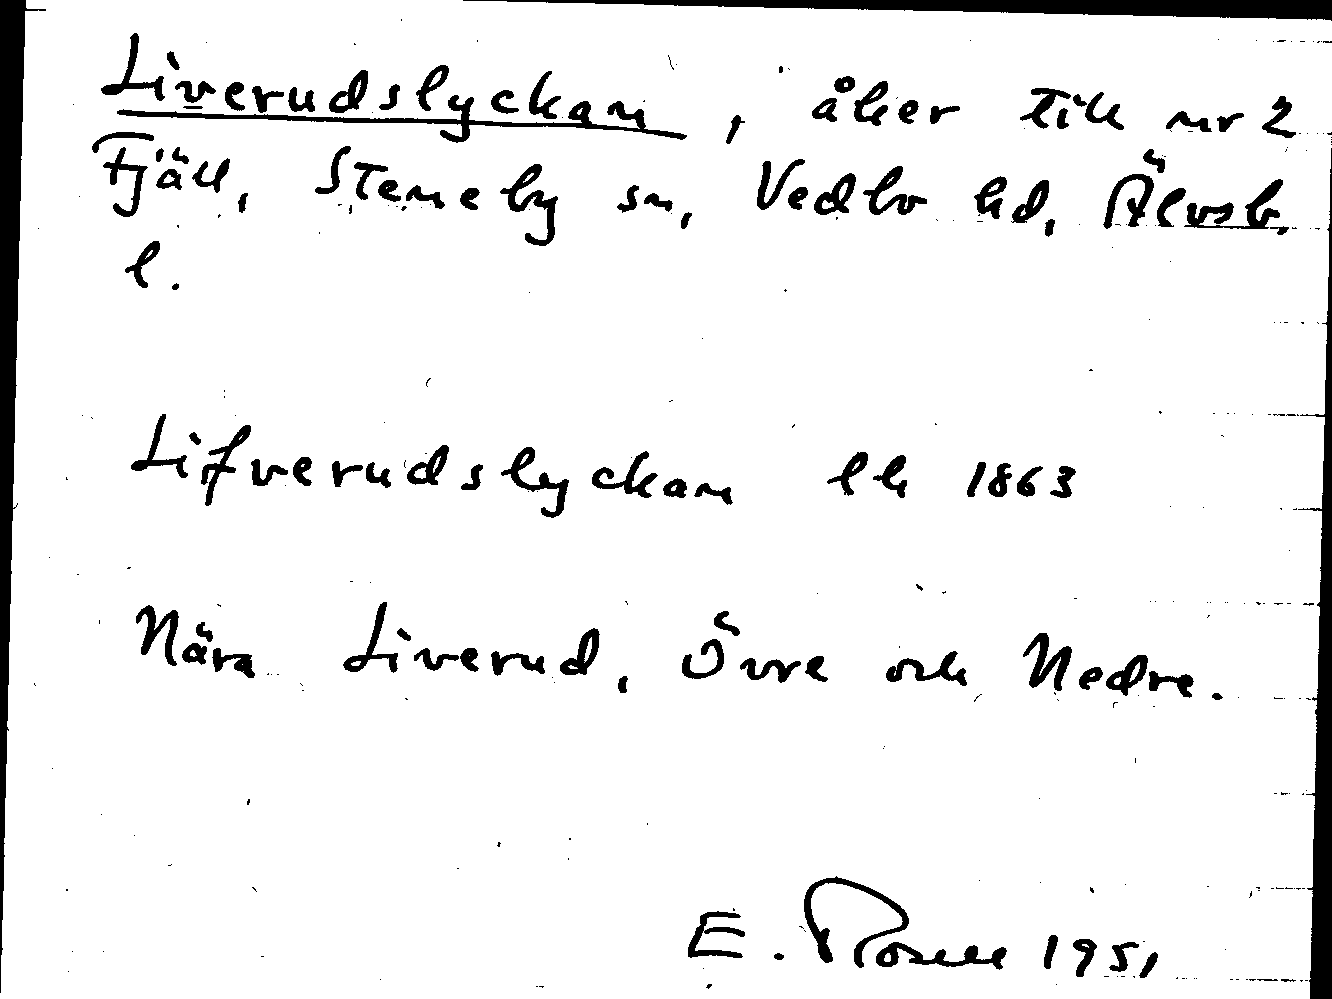 Liverudslyckan, åker till nr 2
Fjäll, Steneby sn, Vedbo hd, Älvsb.
l.
Lifverudslyckan lh 1863
Nära Liverud, Övre och Nedre.
E. Rosell 1951